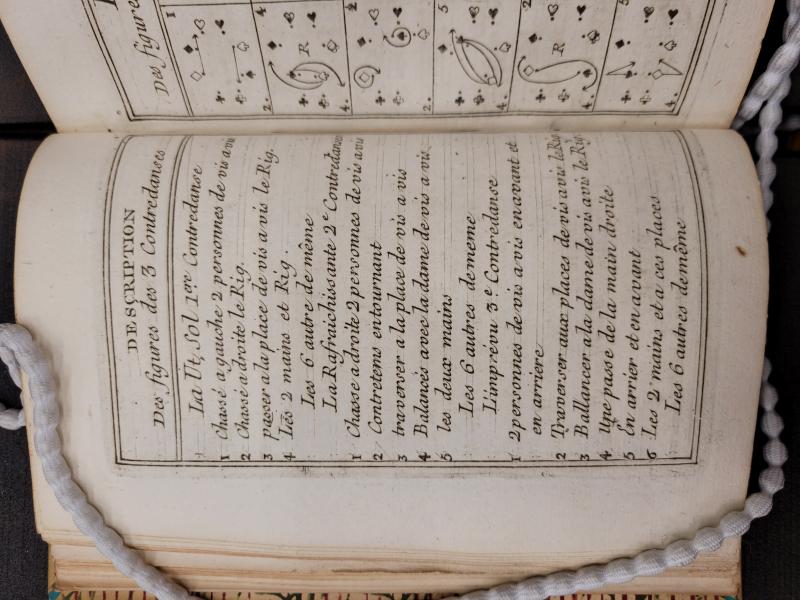 DESCRIPTION
Des figures des 3 Contredanses
La Ut, Sol 1ere Contredanse
1 Chassé a gauche 2 personnes de vis a vis
2 Chassé a droite le Rig.
3 passer a la place de vis a vis le Rig.
4 Les 2 mains et Rig.
Les 6 autre de même
La Rafraichissante 2e Contredanse
1 Chasse a droite 2 personnes de vis a vis
2 Contretems en tournant
3 traverser a la place de vis a vis
4 Balancés avec la dame de vis a vis
5 les deux mains
Les 6 autres de meme
L'imprévu 3e Contredanse
1 2 personnes de vis a vis en avant et
en arriere
2 Traverser aux places de vis a vis le Rig
3 Ballancer a la dame de vis a vis le Rig.
4 Une passe de la main droite
5 En arrier et en avant
6 Les 2 mains et a ces places
Les 6 autres de même
Des figure
1
2.
4
R
4.
2
2.
5
4.
2
R
4.
5
4.